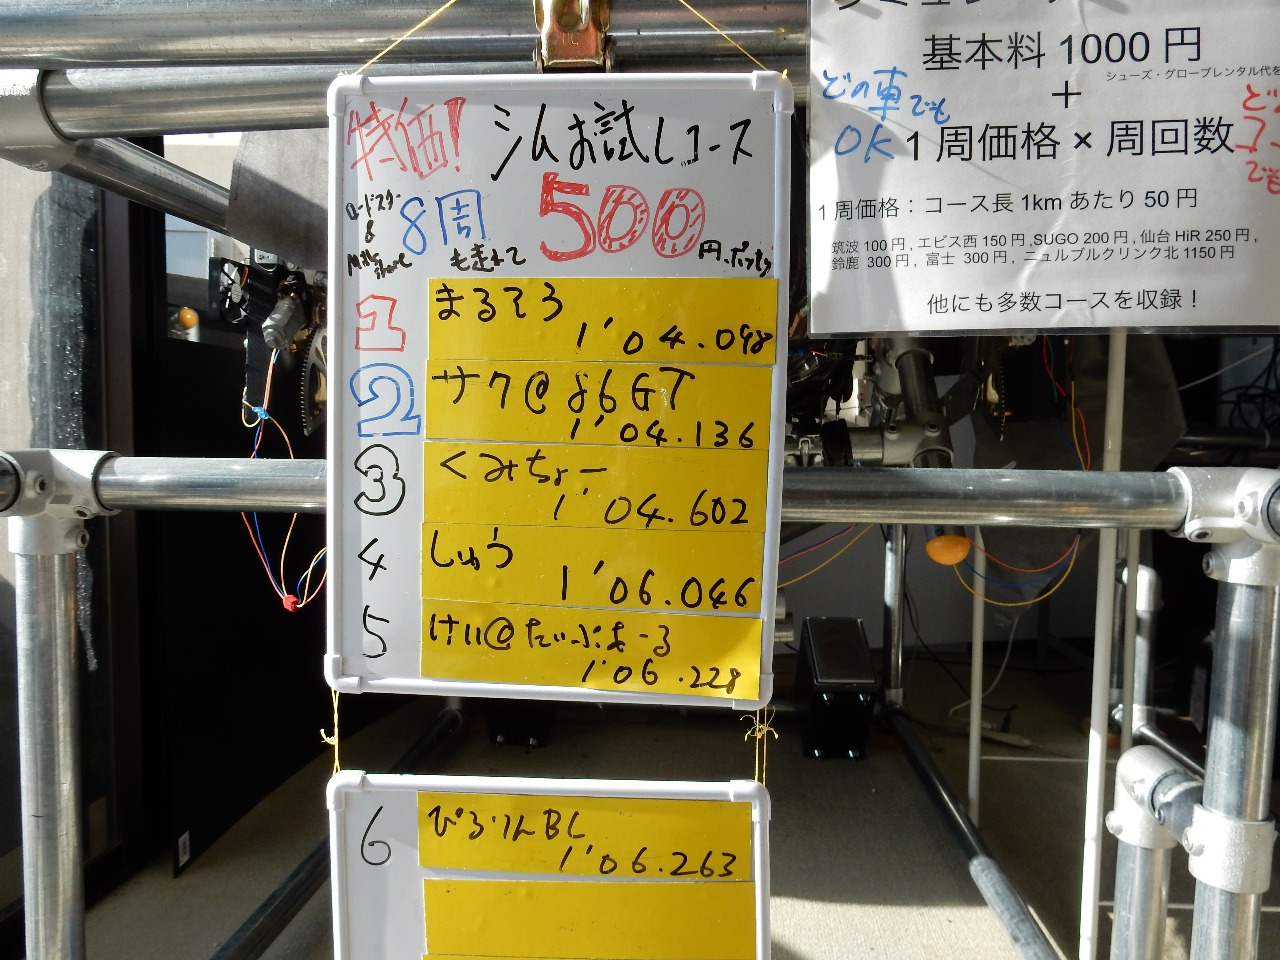 特価!
シムお試しコース
ロードスター
8周
500
も走れて
円ポッキリ
1
まるてろ
1'04.098
2
サク@86GT
1'04.136
3
くみちょー
1'04.602
4
しゅう
1'06.046
5
けい@たいぷあーる
1'06.228
6
BL
1'06.263
基本料 1000 円
シューズ・グローブレンタル代を
+
どの車でも
OK
1 周価格 × 周回数
1 周価格：コース長 1km あたり 50 円
筑波 100 円 , エビス西 150 円 ,SUGO 200 円 , 仙台 HiR 250 円 ,
鈴鹿 300 円 , 富士 300 円 , ニュルブルクリンク北 1150 円
他にも多数コースを収録！